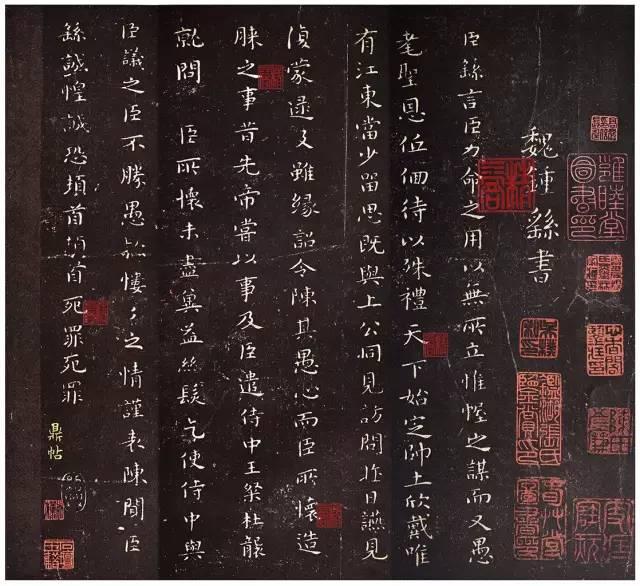 魏鍾繇書
臣繇言臣力命之用以無所立惟幄之謀而又愚
耄聖恩低佪待以殊禮天下始定帥土欣戴唯
有江東當少留思既與上公同見訪問昨日讌見
復蒙逮及雖緣詔令陳其愚心而臣所懷造
膝之事昔先帝嘗以事及臣遣侍中王粲杜襲
就問 臣所懷未盡冀益絲髮乞使侍中與
臣議之臣不勝愚款慺〻之情謹表陳聞臣
繇誠惶誠恐頓首頓首死罪死罪
鼎帖
雍睦堂圖書印